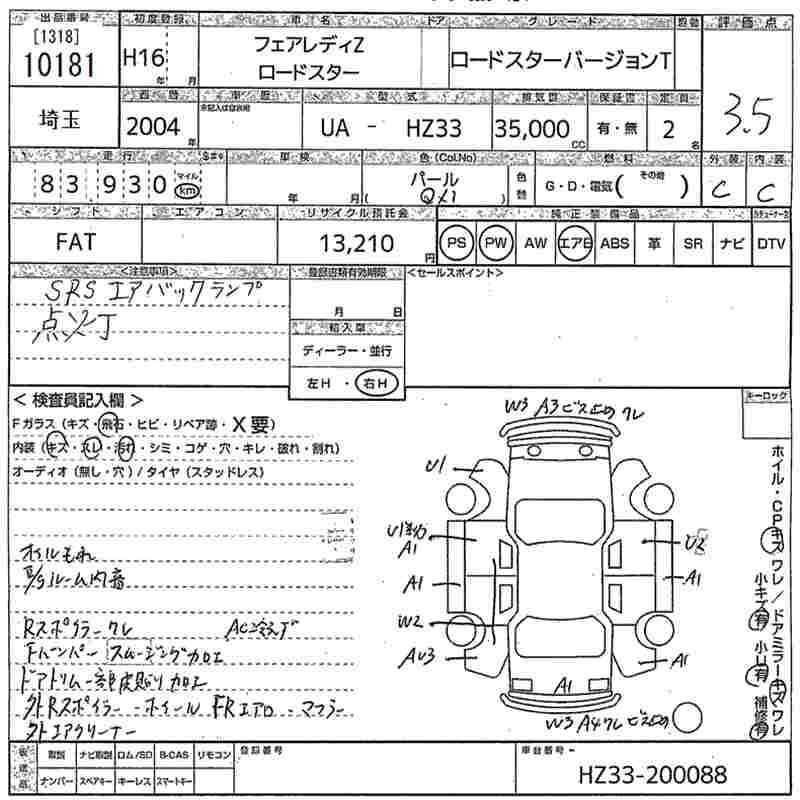 出品番号 初度登録 車名 ドア グレード 評価点
[1318]
10181
H16 年 月
フェアレディZ
ロードスター
ロードスターバージョンT
3.5
埼玉
西暦 車歴 型式 排気量 保証書 定員
2004 年
未記入は自家用
UA - HZ33
35,000 CC
有・無
2 名
走行 車検 色(Col.No) 燃料 外装 内装
83,930 マイル km
年 月
パール
( QX1 )
色替
G・D・電気( その他 )
C C
シフト エアコン リサイクル預託金 純正装備品
FAT
13,210 円
PS PW AW エアB ABS 革 SR ナビ DTV
<注意事項> 登録書類有効期限 <セールスポイント>
SRSエアバックランプ
点灯
月 日
輸入車
ディーラー・並行
左H・右H
キーロック
< 検査員記入欄 >
Fガラス (キズ・飛石・ヒビ・リペア跡・X要)
内装 (キズ・スレ・汚れ・シミ・コゲ・穴・キレ・破れ・割れ)
オーディオ (無し・穴) / タイヤ (スタッドレス)
オイルもれ
E/gルーム内音
Rスポイラークレ AC冷えず
Fバンパースムージング加工
ドアトリム一部皮貼り加工
外Rスポイラー・ホイール FRエアロ・マフラー
外エアクリーナー
W3 A3 ビス止め クレ
U1
A1
A1
W2
AU3
U2
A1
A1
A1
W3 A4 クレ ビス止め
ホイル・CPキズワレ/ドアミラーキズワレ
小キズ有 小U有 補修有
返送品
取説 ナビ取説 ロム/SD B-CAS リモコン
ナンバー スペアキー キーレス スマートキー
登録番号
車台番号
HZ33-200088